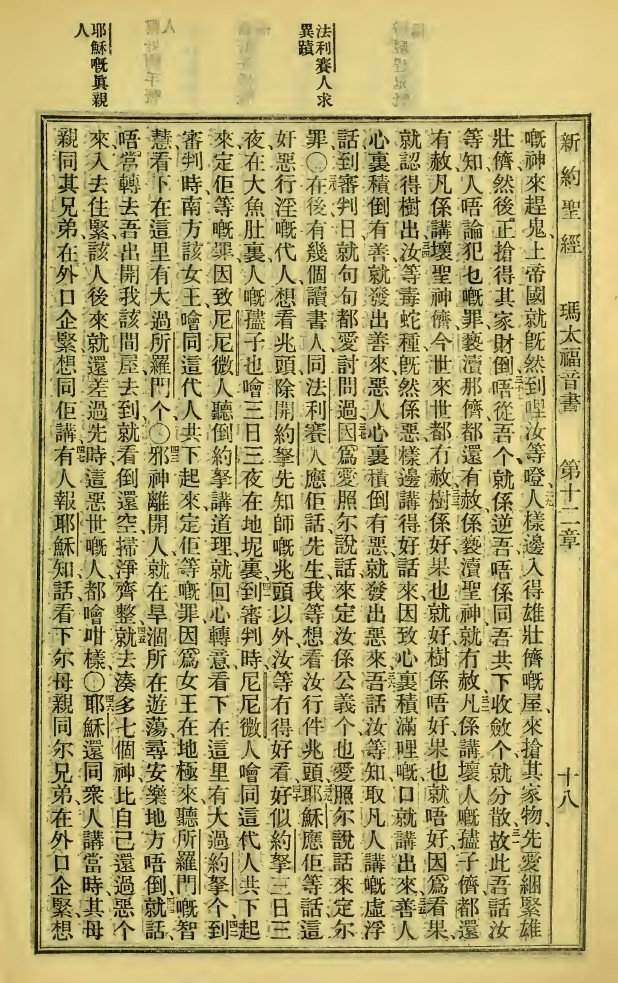 新約聖經 瑪太福音書 第十二章 十八
嘅神來趕鬼上帝國就旣然到哩汝等噔人樣邊入得雄壯儕嘅屋來搶其家物先愛綑緊雄
壯儕然後正搶得其家財倒唔從吾个就係逆吾唔係同吾共下收斂个就分散故此吾話汝
等知人唔論犯乜嘅罪褻瀆那儕都還有赦係褻瀆聖神就冇赦凡係講壞人嘅孻子儕都還
有赦凡係講壞聖神儕今世來世都冇赦樹係好果也就好樹係唔好果也就唔好因爲看果
就認得樹出汝等毒蛇種旣然係惡樣邊講得好話來因致心裏積滿哩嘅口就講出來善人
心裏積倒有善就發出善來惡人心裏積倒有惡就發出惡來吾話汝等知取凡人講嘅虛浮
話到審判日就句句都愛討問過因爲愛照尔說話來定汝係公義个也愛照尔說話來定尔
罪〇在後有幾個讀書人同法利賽人應佢話先生我等想看汝行件兆頭耶穌應佢等話這
奸惡行淫嘅代人想看兆頭除開約拏先知師嘅兆頭以外汝等冇得好看好似約拏三日三
夜在大魚肚裏人嘅孻子也噲三日三夜在地坭裏到審判時尼尼微人噲同這代人共下起
來定佢等嘅罪因致尼尼微人聽倒約拏講道理就回心轉意看下在這里有大過約拏个到
審判時南方該女王噲同這代人共下起來定佢等嘅罪因爲女王在地極來聽所羅門嘅智
慧看下在這里有大過所羅門个〇邪神離開人就在旱涸所在遊蕩尋安樂地方唔倒就話
唔當轉去吾出開我該間屋去到就看倒還空掃淨齊整就去湊多七個神比自己還過惡个
來入去住緊該人後來就還差過先時這惡世嘅人都噲咁樣〇耶穌還同衆人講當時其母
親同其兄弟在外口企緊想同佢講有人報耶穌知話看下尔母親同尔兄弟在外口企緊想
法利賽人求
異蹟
耶穌嘅眞親
人